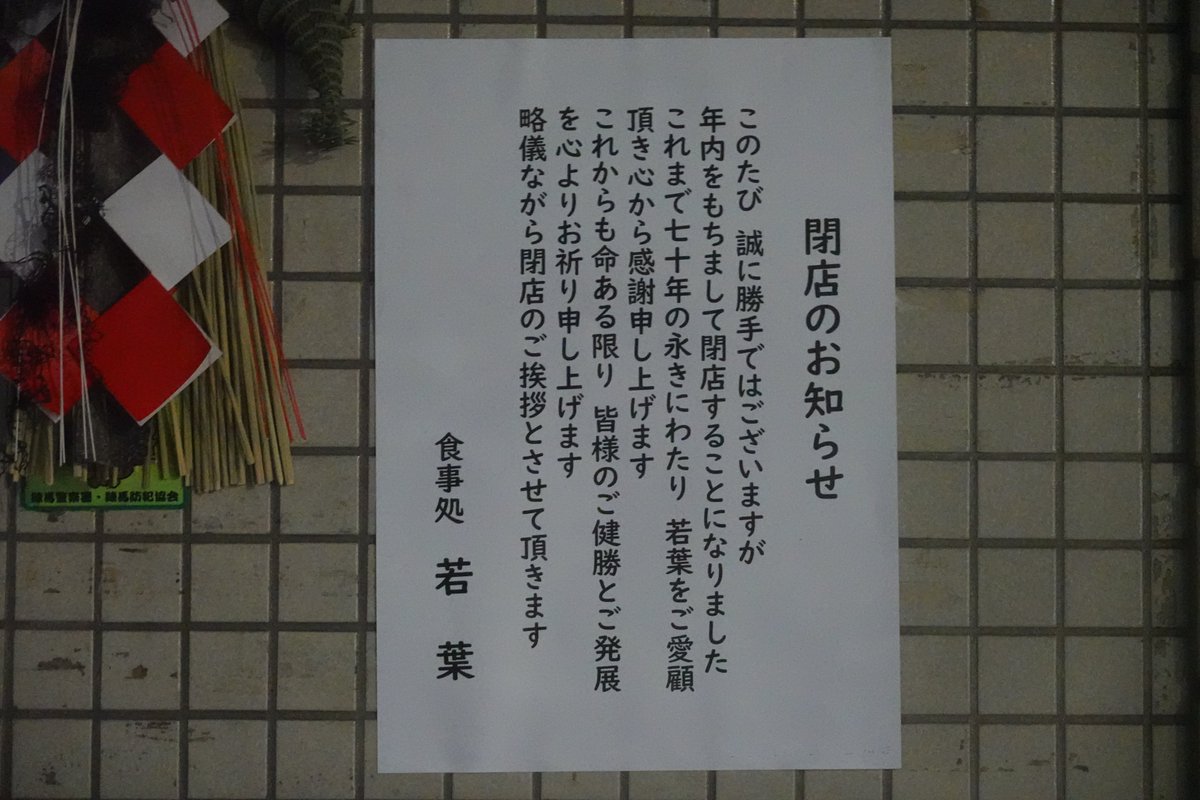 閉店のお知らせ
このたび 誠に勝手ではございますが
年内をもちまして閉店することになりました
これまで七十年の永きにわたり 若葉をご愛顧
頂き心から感謝申し上げます
これからも命ある限り 皆様のご健勝とご発展
を心よりお祈り申し上げます
略儀ながら閉店のご挨拶とさせて頂きます
食事処 若葉
練馬警察署・練馬防犯協会